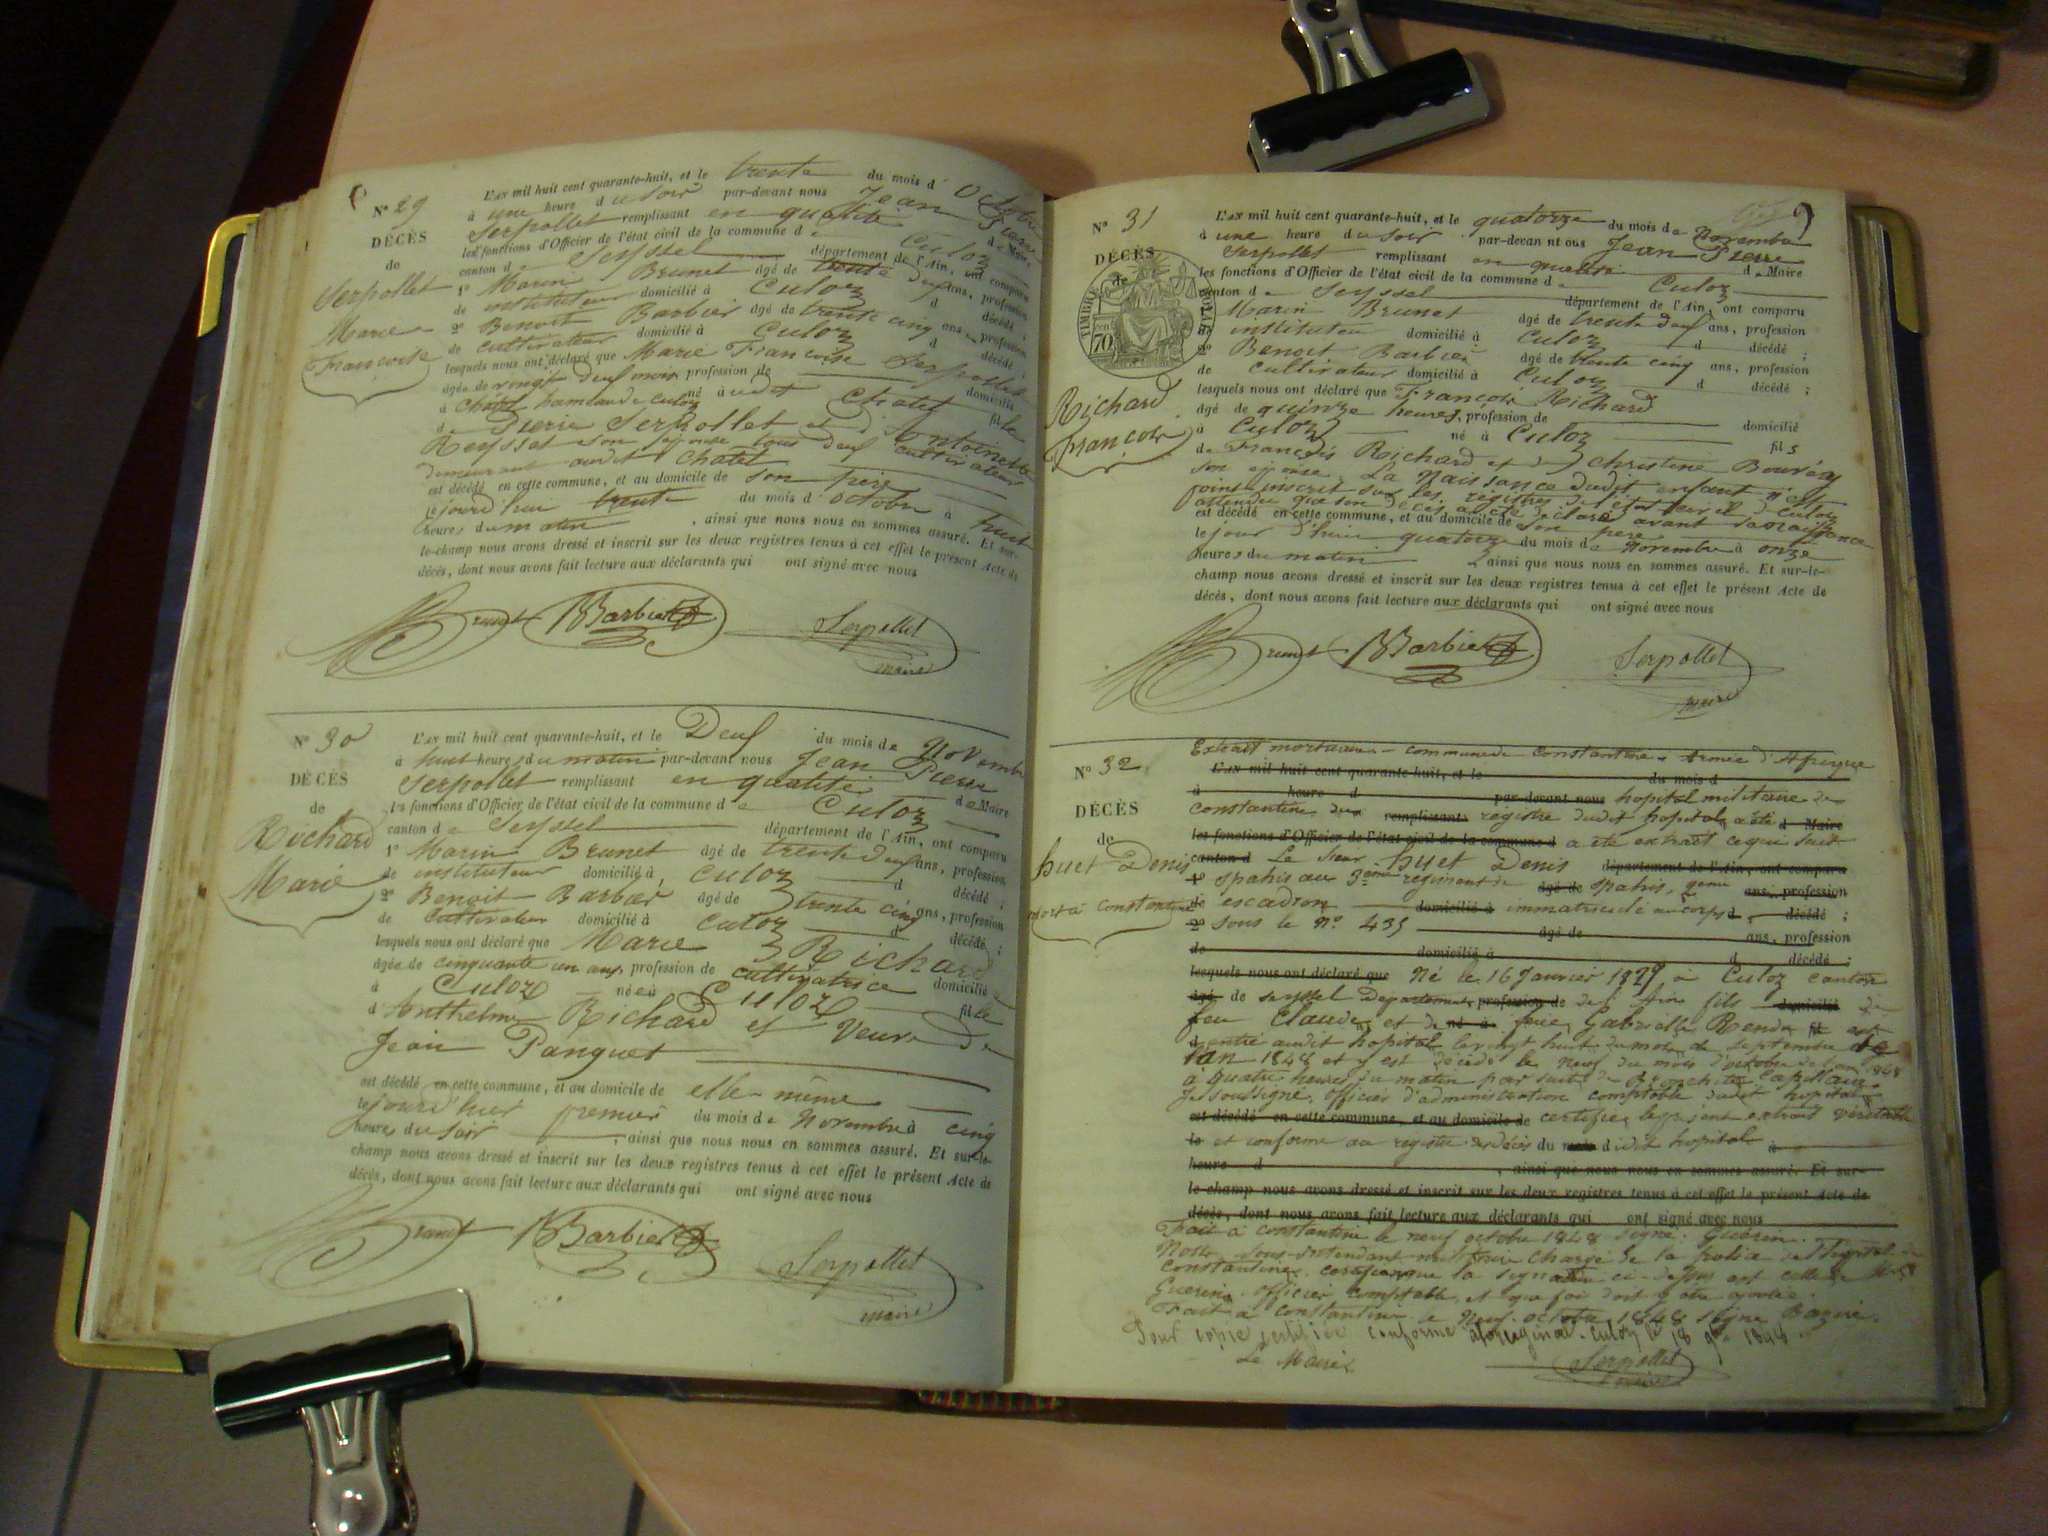 Nº 29
DÉCÈS
de
Serpollet
Marie
Françoise
L'AN mil huit cent quarante-huit, et le trente du mois d' Octobre
à une heure du soir par-devant nous Jean Pierre
Serpollet remplissant en qualité de Maire
les fonctions d'Officier de l'état civil de la commune de Culoz
canton de Seyssel département de l'Ain, ont comparu
1º Marin Brunet âgé de trente deux ans, profession
de instituteur domicilié à Culoz d décédé ;
2º Benoit Barbier âgé de trente cinq ans, profession
de cultivateur domicilié à Culoz d décédé ;
lesquels nous ont déclaré que Marie Françoise Serpollet
âgée de vingt deux mois profession de domicilié
à Chatel hameau de Culoz né à udit Chatel fille
de Pierre Serpollet et d'Antoinette
Reysset son épouse tous deux cultivateurs
demeurant audit Chatel
est décédé en cette commune, et au domicile de son père
le jourd'hui trente du mois d'octobre à huit
heures du matin , ainsi que nous nous en sommes assuré. Et sur-
le-champ nous avons dressé et inscrit sur les deux registres tenus à cet effet le présent Acte de
décès, dont nous avons fait lecture aux déclarants qui ont signé avec nous
Brunet BBarbier Serpollet
maire
Nº 30
DÉCÈS
de
Richard
Marie
L'AN mil huit cent quarante-huit, et le Deux du mois de Novembre
à huit heures du matin par-devant nous Jean Pierre
Serpollet remplissant en qualité de Maire
les fonctions d'Officier de l'état civil de la commune de Culoz
canton de Seyssel département de l'Ain, ont comparu
1º Marin Brunet âgé de trente deux ans, profession
de instituteur domicilié à Culoz d décédé ;
2º Benoit Barbier âgé de trente cinq ans, profession
de cultivateur domicilié à Culoz d décédé ;
lesquels nous ont déclaré que Marie Richard
âgée de cinquante un ans, profession de cultivatrice domicilié
à Culoz née à Culoz fille
d'Anthelme Richard et Veuve De
Jean Panguet
est décédé en cette commune, et au domicile de elle-même
le jourd'hier premier du mois de Novembre à cinq
heures du soir , ainsi que nous nous en sommes assuré. Et sur-le-
champ nous avons dressé et inscrit sur les deux registres tenus à cet effet le présent Acte de
décès, dont nous avons fait lecture aux déclarants qui ont signé avec nous
Brunet BBarbier Serpollet
maire
Nº 31
DÉCÈS
de
TIMBRE ROYAL
70
Richard
François
L'AN mil huit cent quarante-huit, et le quatorze du mois de Novembre
à une heure du soir par-devan nt ous Jean Pierre
Serpollet remplissant en qualité de Maire
les fonctions d'Officier de l'état civil de la commune de Culoz
canton de Seyssel département de l'Ain, ont comparu
1º Marin Brunet âgé de trente deux ans, profession
instituteur domicilié à Culoz d décédé ;
2º Benoit Barbier âgé de trente cinq ans, profession
de cultivateur domicilié à Culoz d décédé ;
lesquels nous ont déclaré que François Richard
âgé de quinze heures, profession de domicilié
à Culoz né à Culoz fils
de François Richard et de Christine Bouvery
son épouse La Naissance dudit enfant n'est
point inscrit sur les registres de l'état civil d Culoz
attendu que son décès a été déclaré avant sa naissance
est décédé en cette commune, et au domicile de son père
le jour d'hui quatorze du mois de Novembre à onze
heures du matin , ainsi que nous nous en sommes assuré. Et sur-le-
champ nous avons dressé et inscrit sur les deux registres tenus à cet effet le présent Acte de
décès, dont nous avons fait lecture aux déclarants qui ont signé avec nous
Brunet BBarbier Serpollet
maire
Nº 32
DÉCÈS
de
huet Denis
mort à Constantine
Extrait mortuaire - commune de Constantine - Armée d'Afrique
L'AN mil huit cent quarante-huit, et le du mois d
à heure d par-devant nous hopital militaire de
constantine du remplissant registre dudit hopital a été d Maire
les fonctions d'Officier de l'état civil de la commune d a été extrait ce qui suit
canton d Le Sieur huet Denis département de l'Ain, ont comparu
1º spahis au 3eme régiment de âgé de spahis, 2eme ans, profession
de escadron domicilié à immatriculé au corps d décédé ;
2º sous le Nº 435 âgé de ans, profession
de domicilié à d décédé ;
lesquels nous ont déclaré que Né le 16 Janvier 1827 à Culoz canton
âgé de seyssel Departement profession de de l'Ain fils domicilié de
feu Claude et de né à feue Gabrielle Rendu fil est
d entré audit hopital le vingt huit du mois de Septembre de
l'an 1848 et y est décédé le neuf du mois d'octobre de l'an 1848
à quatre heures du matin par suite de Bronchite Capillaire
Je soussigné, officier d'administration comptable dudit hopital
est décédé en cette commune, et au domicile de certifie le présent extrait véritable
le et conforme au registre des décès du mois dudit hopital à
heure d , ainsi que nous nous en sommes assuré. Et sur-
le-champ nous avons dressé et inscrit sur les deux registres tenus à cet effet le présent Acte de
décès, dont nous avons fait lecture aux déclarants qui ont signé avec nous
Fait à constantine le neuf octobre 1848 signé. Guérin.
Nous sous-intendant militaire chargé de la police de l'hopital de
constantine, certifions que la signature ci-dessus est celle de Mr
Guerin officier comptable et que foi doit y être ajoutée.
Fait à constantine le Neuf octobre 1848 signé
Pour copie certifiée conforme à l'original. Culoz le 18 9bre 1848.
Le Maire
Serpollet
maire